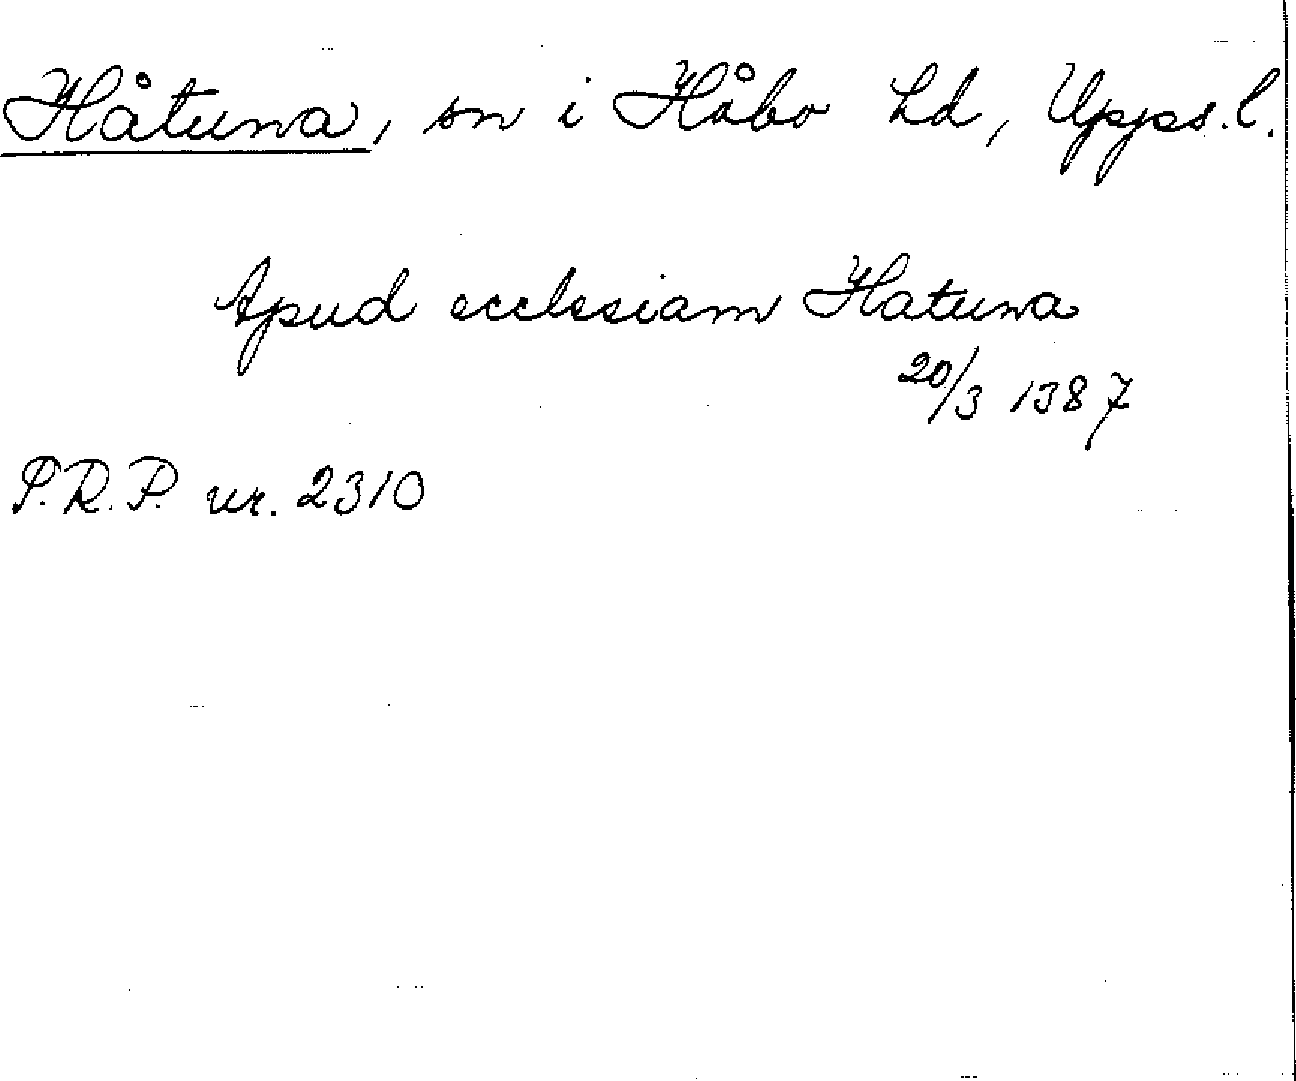 Håtuna, sn i Håbo hd, Upps. l.
Apud ecclesiam Hatuna
20/3 1387
P.R.P. nr. 2310